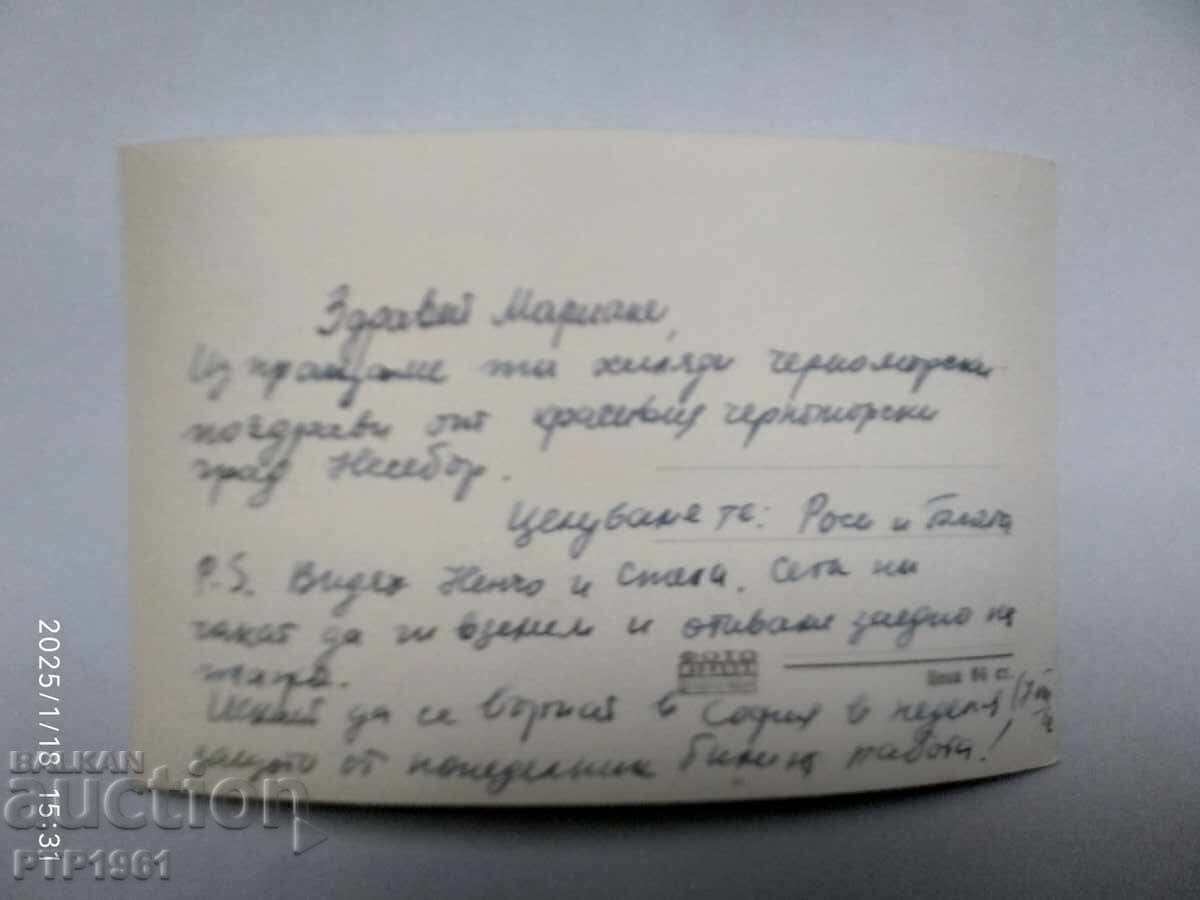 Здравей Мариане,
Изпращаме ти хиляди черноморски
поздрави от красивия черноморски
град Несебър.
Целуваме те: Росе и
P.S. Видях Ненчо и Сега ни
чакат да ги вземем и отиваме заедно на
плажа.
ФОТО
Цена 06 ст.
Искат да се върнат в София в неделя
защото от понеделник били на работа!
2025/1/18 15:31
BALKAN
auction
PTP1961